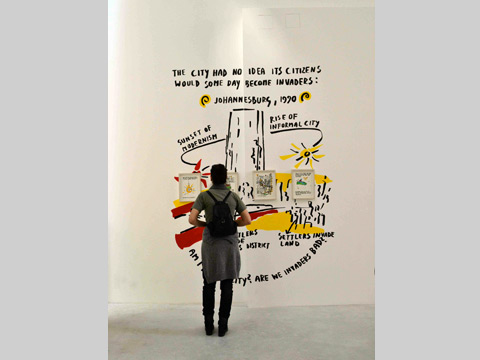 THE CITY HAD NO IDEA ITS CITIZENS
WOULD SOME DAY BECOME INVADERS:
JOHANNESBURG, 1990
SUNSET OF
MODERNISM
RISE OF
INFORMAL CITY
DISTRICT
SETTLERS INVADE
LAND
AM I CITY? ARE WE INVADERS BAD?